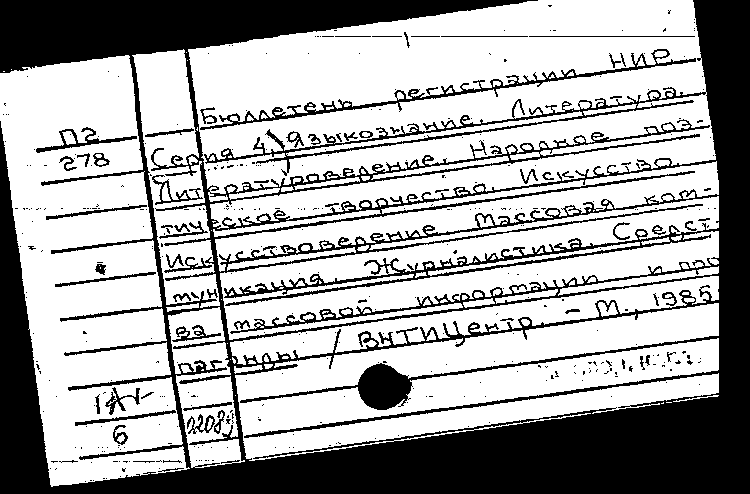 Бюллетень регистрации НИР
П2
278
Серия 4, Языкознание. Литература.
Литературоведение. Народное поэ-
тическое творчество. Искусство.
Искусствоведение. Массовая ком-
муникация. Журналистика. Средст-
ва массовой информации и про
паганды / ВНТИЦентр. – М., 1985
6